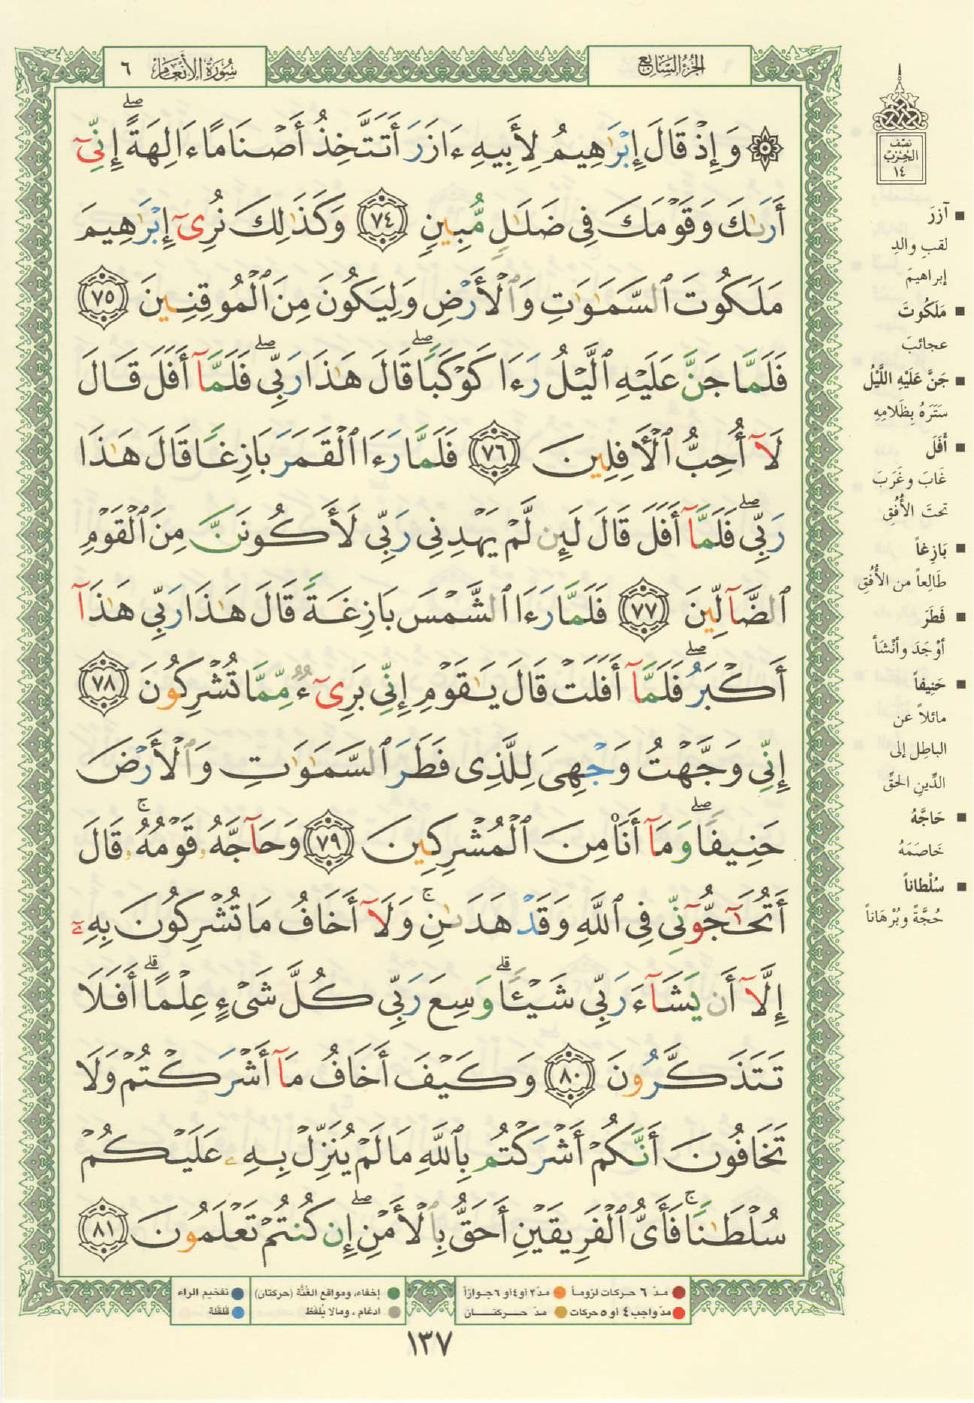 سُورَةُ الأَنْعَام ٦
الجُزْءُ السَّابِع
۞ وَإِذْ قَالَ إِبْرَٰهِيمُ لِأَبِيهِ ءَازَرَ أَتَتَّخِذُ أَصْنَامًا ءَالِهَةً ۖ إِنِّىٓ
أَرَىٰكَ وَقَوْمَكَ فِى ضَلَٰلٍ مُّبِينٍ ٧٤ وَكَذَٰلِكَ نُرِىٓ إِبْرَٰهِيمَ
مَلَكُوتَ ٱلسَّمَٰوَٰتِ وَٱلْأَرْضِ وَلِيَكُونَ مِنَ ٱلْمُوقِنِينَ ٧٥
فَلَمَّا جَنَّ عَلَيْهِ ٱلَّيْلُ رَءَا كَوْكَبًا ۖ قَالَ هَٰذَا رَبِّى ۖ فَلَمَّآ أَفَلَ قَالَ
لَآ أُحِبُّ ٱلْأٓفِلِينَ ٧٦ فَلَمَّا رَءَا ٱلْقَمَرَ بَازِغًا قَالَ هَٰذَا
رَبِّى ۖ فَلَمَّآ أَفَلَ قَالَ لَئِن لَّمْ يَهْدِنِى رَبِّى لَأَكُونَنَّ مِنَ ٱلْقَوْمِ
ٱلضَّآلِّينَ ٧٧ فَلَمَّا رَءَا ٱلشَّمْسَ بَازِغَةً قَالَ هَٰذَا رَبِّى هَٰذَآ
أَكْبَرُ ۖ فَلَمَّآ أَفَلَتْ قَالَ يَٰقَوْمِ إِنِّى بَرِىٓءٌ مِّمَّا تُشْرِكُونَ ٧٨
إِنِّى وَجَّهْتُ وَجْهِىَ لِلَّذِى فَطَرَ ٱلسَّمَٰوَٰتِ وَٱلْأَرْضَ
حَنِيفًا ۖ وَمَآ أَنَا۠ مِنَ ٱلْمُشْرِكِينَ ٧٩ وَحَآجَّهُۥ قَوْمُهُۥ ۚ قَالَ
أَتُحَٰٓجُّوٓنِّى فِى ٱللَّهِ وَقَدْ هَدَىٰنِ ۚ وَلَآ أَخَافُ مَا تُشْرِكُونَ بِهِۦٓ
إِلَّآ أَن يَشَآءَ رَبِّى شَيْـًٔا ۗ وَسِعَ رَبِّى كُلَّ شَىْءٍ عِلْمًا ۗ أَفَلَا
تَتَذَكَّرُونَ ٨٠ وَكَيْفَ أَخَافُ مَآ أَشْرَكْتُمْ وَلَا
تَخَافُونَ أَنَّكُمْ أَشْرَكْتُم بِٱللَّهِ مَا لَمْ يُنَزِّلْ بِهِۦ عَلَيْكُمْ
سُلْطَٰنًا ۚ فَأَىُّ ٱلْفَرِيقَيْنِ أَحَقُّ بِٱلْأَمْنِ ۖ إِن كُنتُمْ تَعْلَمُونَ ٨١
نصْف
الحِزْبْ
١٤
▪ آزَرَ
لقب والدِ
إبراهيمَ
▪ مَلَكُوتَ
عجائبَ
▪ جَنَّ عَلَيْهِ اللَّيْلُ
سَتَرَهُ بِظَلَامِهِ
▪ أَفَلَ
غَابَ وغَرَبَ
تحتَ الأُفُقِ
▪ بَازِغاً
طَالِعاً من الأُفُقِ
▪ فَطَرَ
أوْجَدَ وأنْشَأ
▪ حَنِيفاً
مائلاً عن
الباطِلِ إلى
الدِّينِ الحَقِّ
▪ حَاجَّهُ
خَاصَمَهُ
▪ سُلْطَاناً
حُجَّةً وبُرْهَاناً
مدّ ٦ حركات لزوماً ● مدّ ٢ أو ٤ أو ٦ جوازاً
مدّ واجب ٤ أو ٥ حركات ● مدّ حـــركتـــان
إخفاء، ومواقع الغُنَّة (حركتان) ● تفخيم الراء
ادغام ، ومالا يُلفَظ ● قلقلة
١٣٧